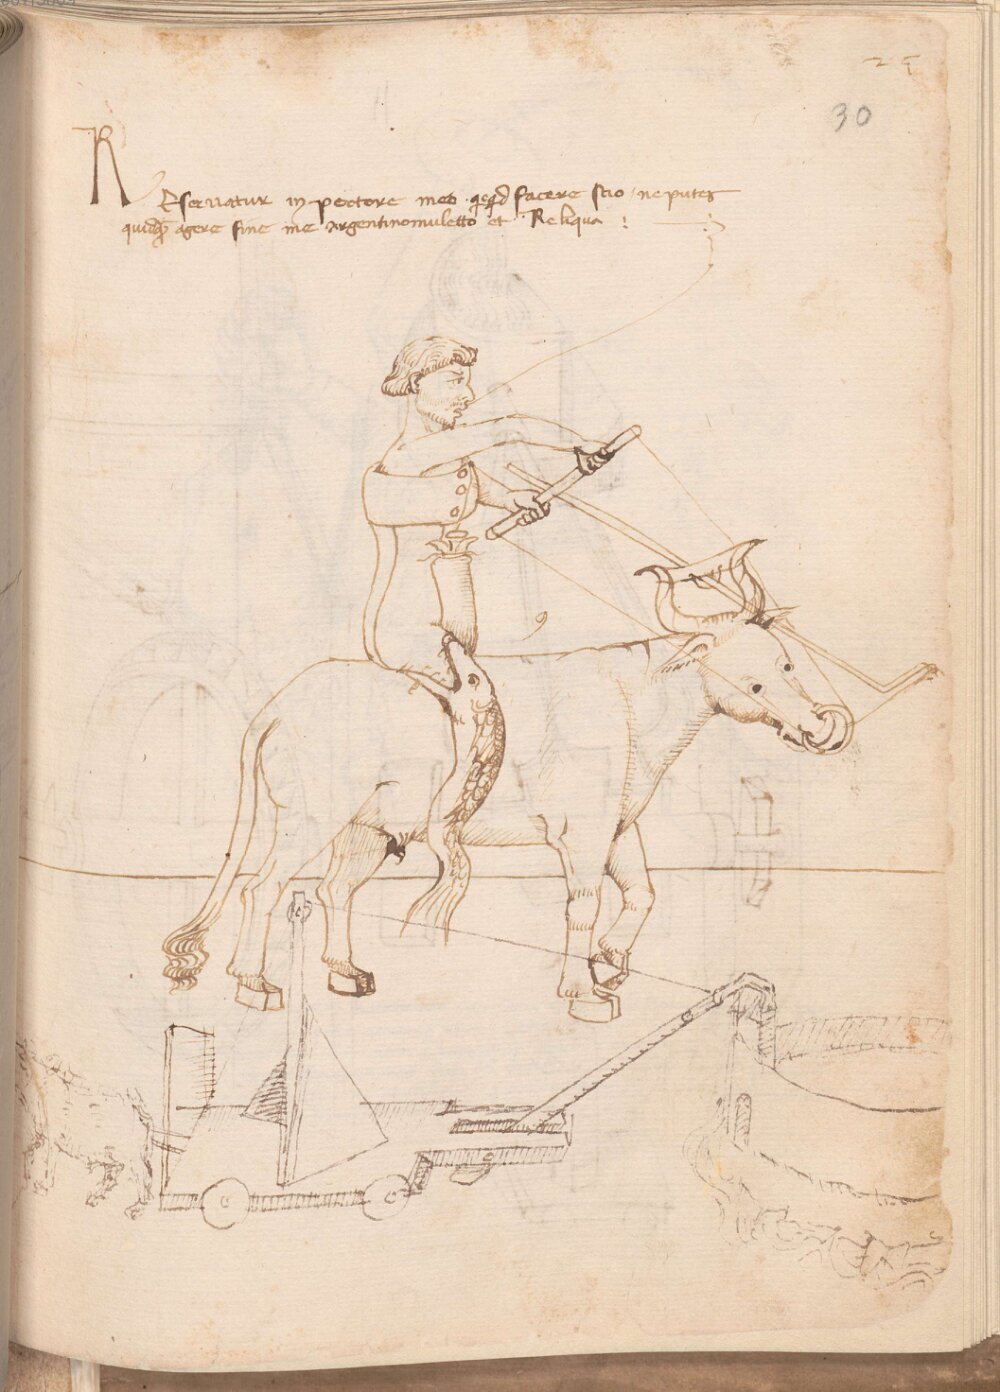 25
30
REservatur in pectore meo quicquid facere scio ne putes
agere sine me Argentinomuletto et Reliqua :